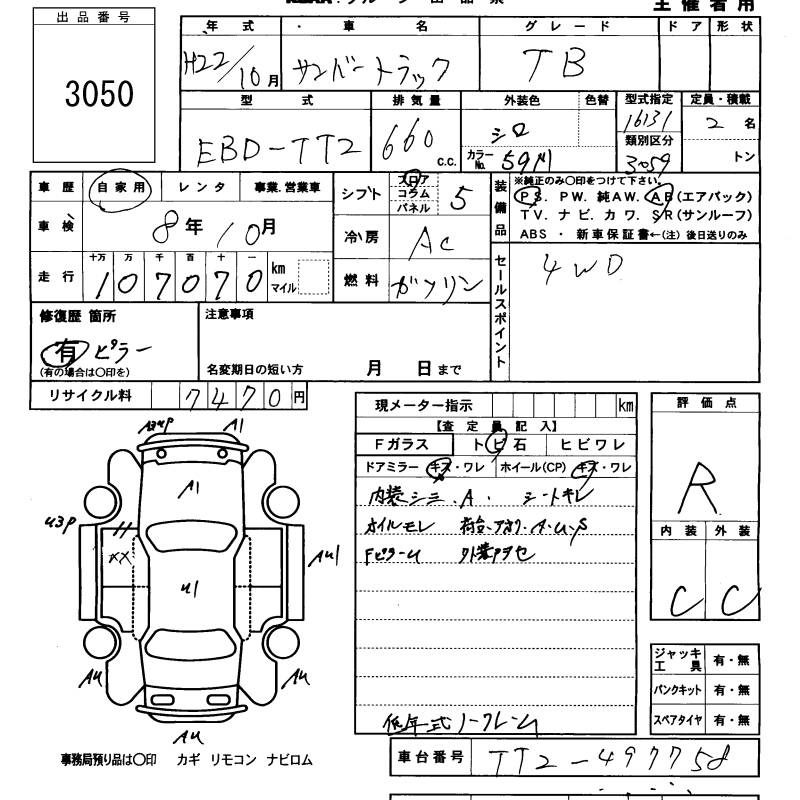 主催者用
出品番号
3050
年式 ・車名 グレード ドア 形状
H22/10月 サンバートラック TB
型式 排気量 外装色 色替 型式指定 定員・積載
EBD-TT2 660 c.c. シロ 16131 2名
カラーNo. 類別区分 3059 トン
車歴 自家用 レンタ 事業.営業車
車検 8年10月
走行 十万 万 千 百 十 一
107070 km マイル
シフト フロア コラム パネル 5
冷房 AC
燃料 ガソリン
装備品
※純正のみ○印をつけて下さい。
PS. PW. 純AW. AB(エアバック)
TV. ナビ. カワ. SR(サンルーフ)
ABS ・ 新車保証書←(注) 後日送りのみ
セールスポイント
4WD
修復歴 箇所
有 ピラー
(有の場合は○印を)
注意事項
名変期日の短い方 月 日まで
リサイクル料 7470円
現メーター指示 km
【査定員記入】
Fガラス トビ石 ヒビワレ
ドアミラー キズ・ワレ ホイール(CP) キズ・ワレ
内装シミ.A. シートキレ
オイルモレ 荷台.アオリ.A.U.S
FピラーU 外装アセ
低年式ノークレーム
評価点
R
内装 外装
C C
A1
A1
U3P
XX
U1
AU1
AU
AU
AU
事務局預り品は○印 カギ リモコン ナビロム
ジャッキ工具 有・無
パンクキット 有・無
スペアタイヤ 有・無
車台番号 TT2-497758